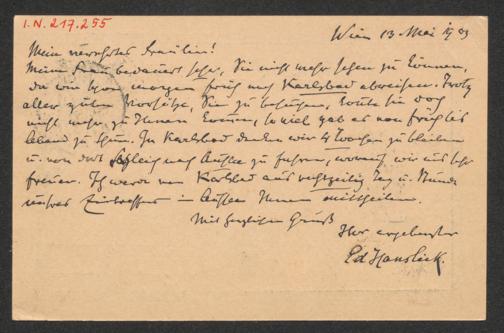 I.N. 217.255
Wien 13 Mai 1903
Mein verehrtes Fräulein!
Meine Frau bedauert sehr, Sie nicht mehr sehen zu können,
da wir schon morgen früh nach Karlsbad abreisen. Trotz
aller guten Vorsätze, Sie zu besuchen, konnte sie doch
nicht mehr zu Ihnen kommen, so viel gab es von früh bis
abend zu thun. In Karlsbad denken wir 4 Wochen zu bleiben
u. von dort gleich nach Aussee zu fahren, worauf wir uns sehr
freuen. Ich werde von Karlsbad aus rechtzeitig Tag u. Stunde
unseres Eintreffens in Aussee Ihnen mittheilen.
Mit herzlichem Gruß
Ihr ergebenster
Ed Hanslick.